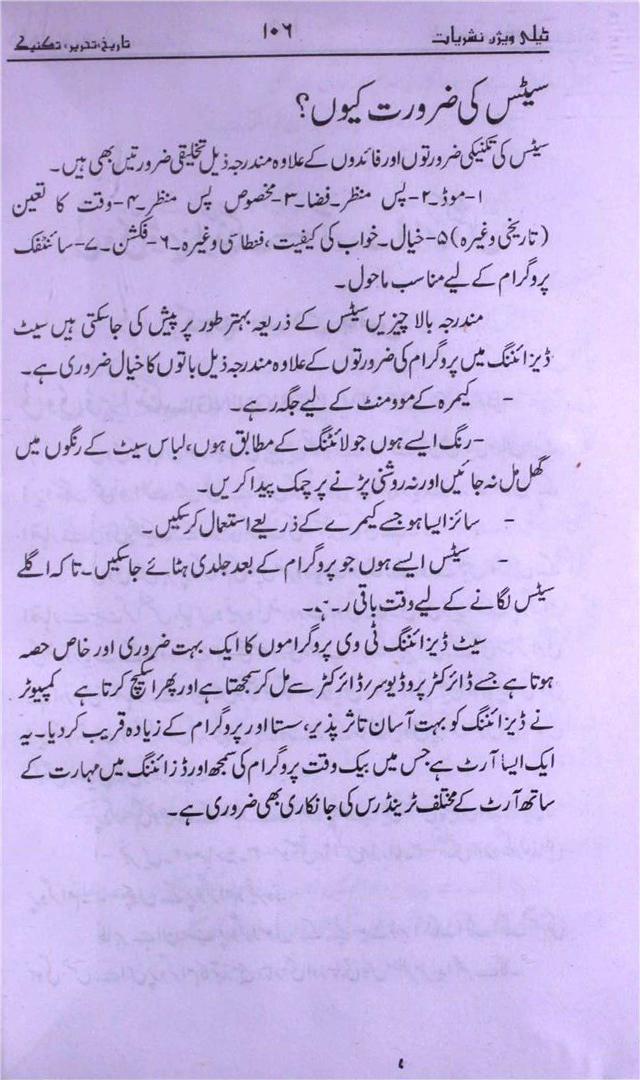 ٹیلی ویژن نشریات ۱۰۶ تاریخ، تحریر، تکنیک
سیٹس کی ضرورت کیوں؟
سیٹس کی تکنیکی ضرورتوں اور فائدوں کے علاوہ مندرجہ ذیل تخلیقی ضرورتیں بھی ہیں۔
۱-موڈ۔۲-پس منظر۔فضا۔۳-مخصوص پس منظر۔۴-وقت کا تعین
(تاریخی وغیرہ)۵-خیال۔خواب کی کیفیت، فنطاسی وغیرہ۔۶-فکشن۔۷-سائنٹفک
پروگرام کے لیے مناسب ماحول۔
مندرجہ بالا چیزیں سیٹس کے ذریعہ بہتر طور پر پیش کی جاسکتی ہیں سیٹ
ڈیزائننگ میں پروگرام کی ضرورتوں کے علاوہ مندرجہ ذیل باتوں کا خیال ضروری ہے۔
- کیمرہ کے موومنٹ کے لیے جگہ رہے۔
-رنگ ایسے ہوں جو لائٹنگ کے مطابق ہوں، لباس سیٹ کے رنگوں میں
گھل مل نہ جائیں اور نہ روشنی پڑنے پر چمک پیدا کریں۔
- سائز ایسا ہو جسے کیمرے کے ذریعے استعمال کرسکیں۔
سیٹس ایسے ہوں جو پروگرام کے بعد جلدی ہٹائے جاسکیں۔ تاکہ اگلے
سیٹس لگانے کے لیے وقت باقی
سیٹ ڈیزائننگ ٹی وی پروگراموں کا ایک بہت ضروری اور خاص حصہ
ہوتا ہے جسے ڈائرکٹر پروڈیوسر/ڈائرکٹر سے مل کر سمجھتا ہے اور پھر اسکیچ کرتا ہے کمپیوٹر
نے ڈیزائننگ کو بہت آسان تاثر پذیر، سستا اور پروگرام کے زیادہ قریب کردیا۔ یہ
ایک ایسا آرٹ ہے جس میں بیک وقت پروگرام کی سمجھ اور ڈزائننگ میں مہارت کے
ساتھ آرٹ کے مختلف ٹرینڈرس کی جانکاری بھی ضروری ہے۔